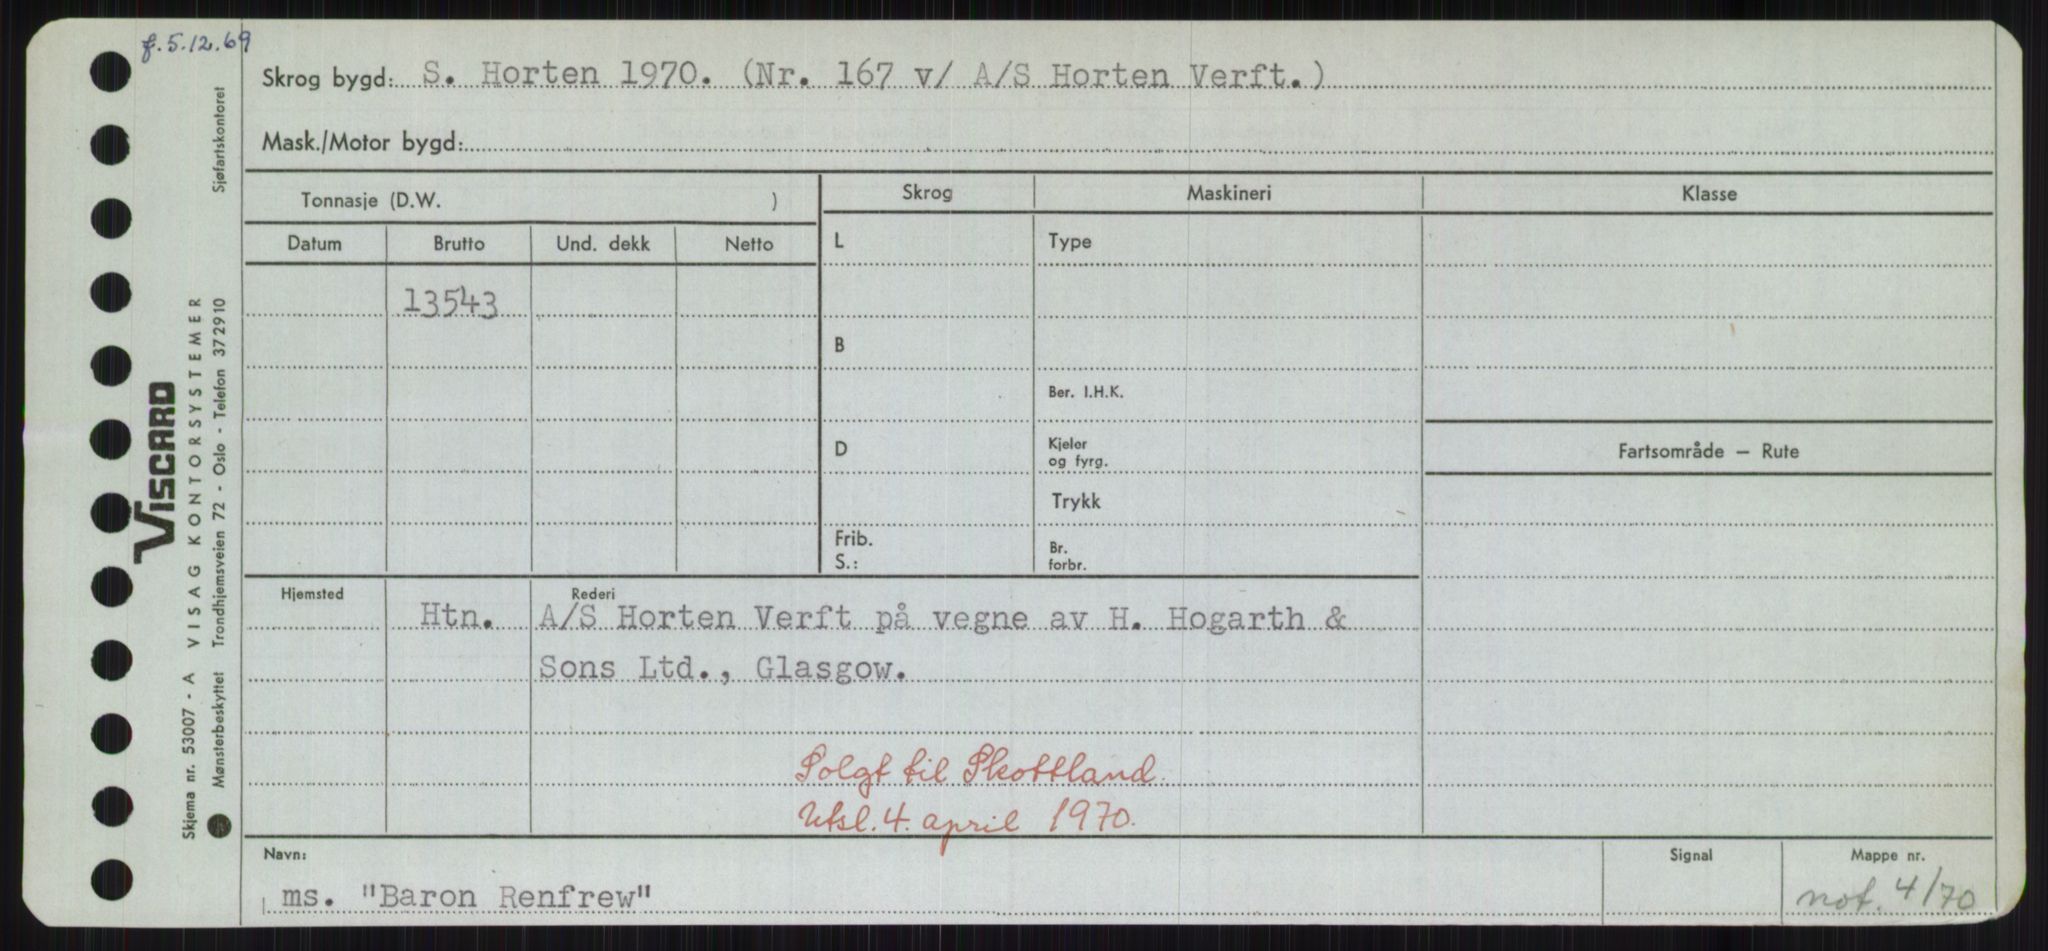 f. 5.12.69
Skrog bygd: S. Horten 1970. (Nr. 167 v/ A/S Horten Verft.)
Mask./Motor bygd:
Tonnasje (D.W. )
Skrog Maskineri Klasse
Datum Brutto Und. dekk Netto
L Type
13543
B
Ber. I.H.K.
D Kjeler og fyrg.
Fartsområde — Rute
Trykk
Frib.
S.:
Br. forbr.
Hjemsted Rederi
Htn. A/S Horten Verft på vegne av H. Hogarth &
Sons Ltd., Glasgow.
Solgt til Skottland.
Utsl. 4. april 1970.
Navn: Signal Mappe nr.
ms. "Baron Renfrew" not. 4/70
VISCARD
Skjema nr. 53007 - A VISAG KONTORSYSTEMER
Mønsterbeskyttet Trondhjemsveien 72 - Oslo - Telefon 372910 Sjøfartskontoret